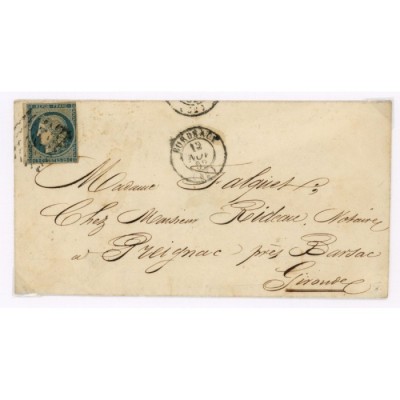 REPUB. FRANC.
BORDEAUX
12
NOV
Madame Falguet
Chez Monsieur Rideau, Notaire
à Preignac près Barsac
Gironde